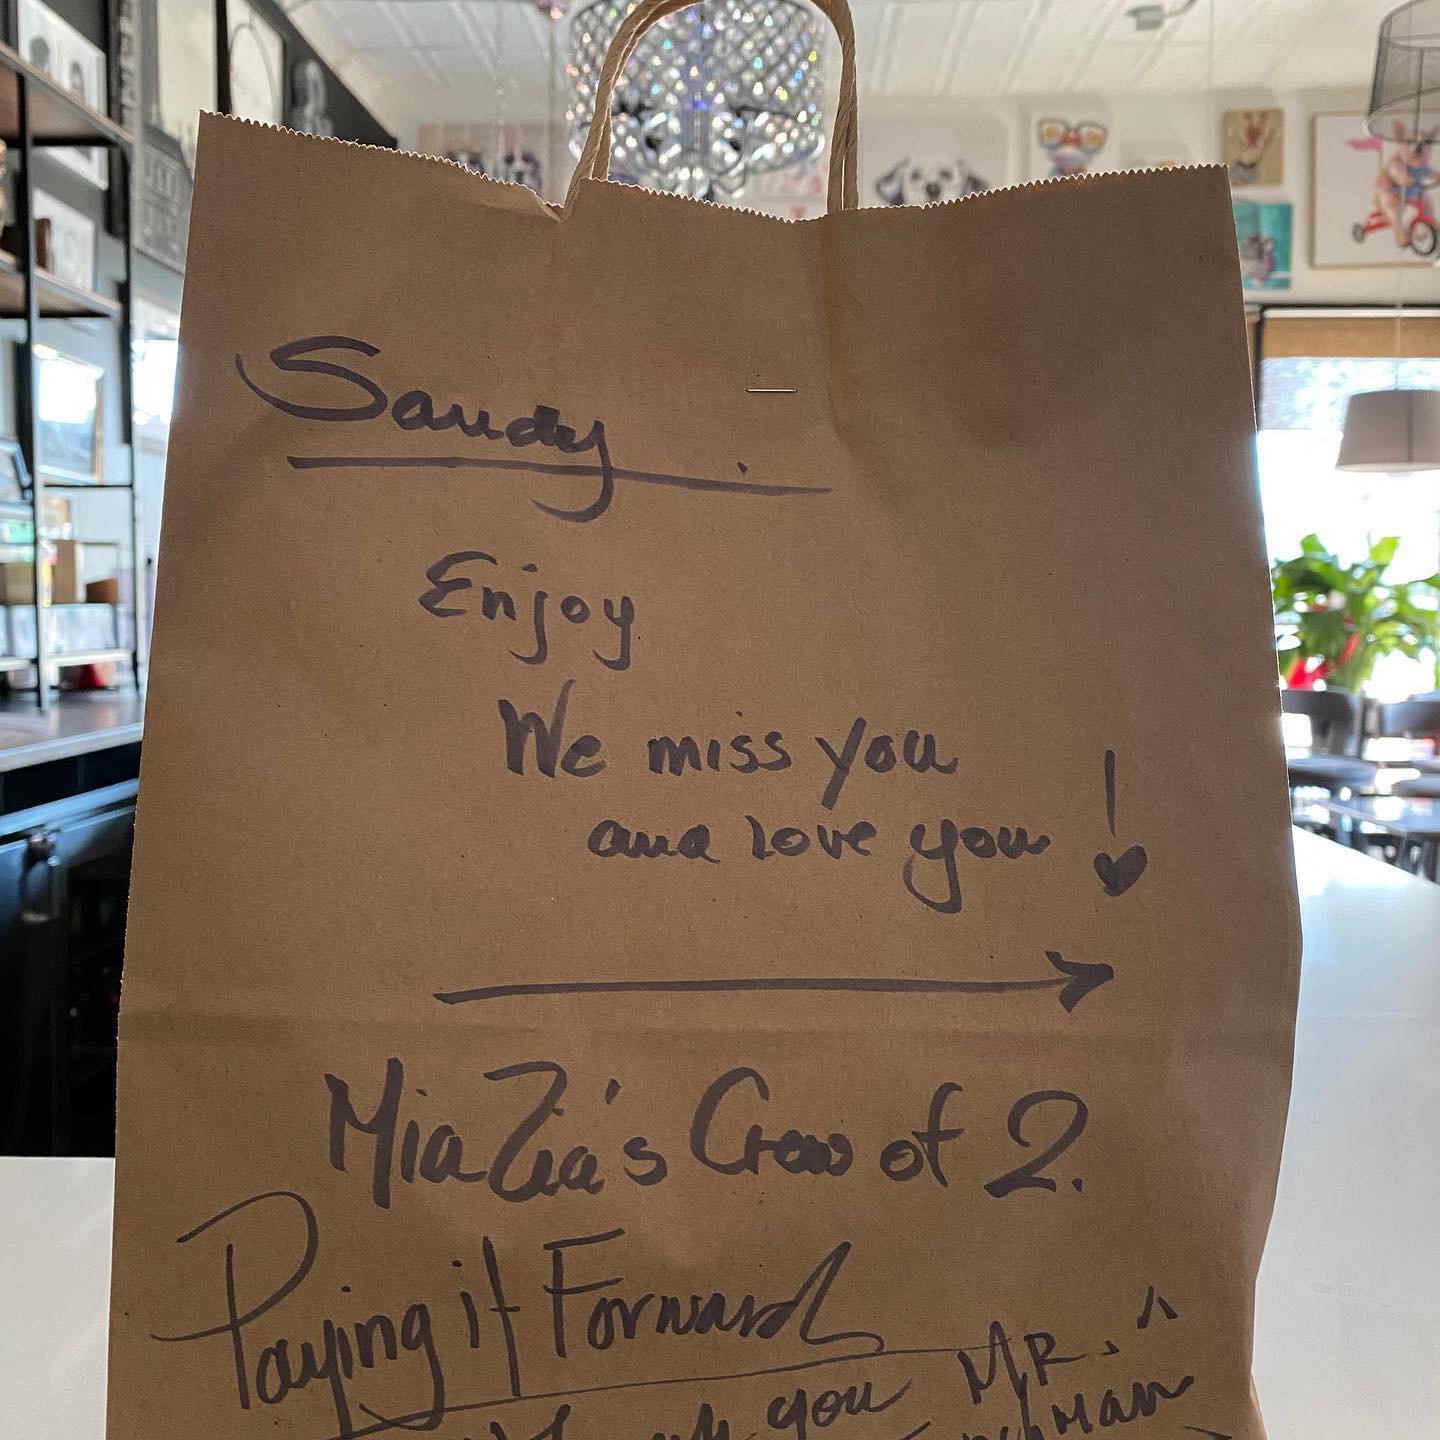 Sandy
Enjoy
We miss you
and love you!
Mia Zia's Crew of 2.
Paying it Forward
you MR.